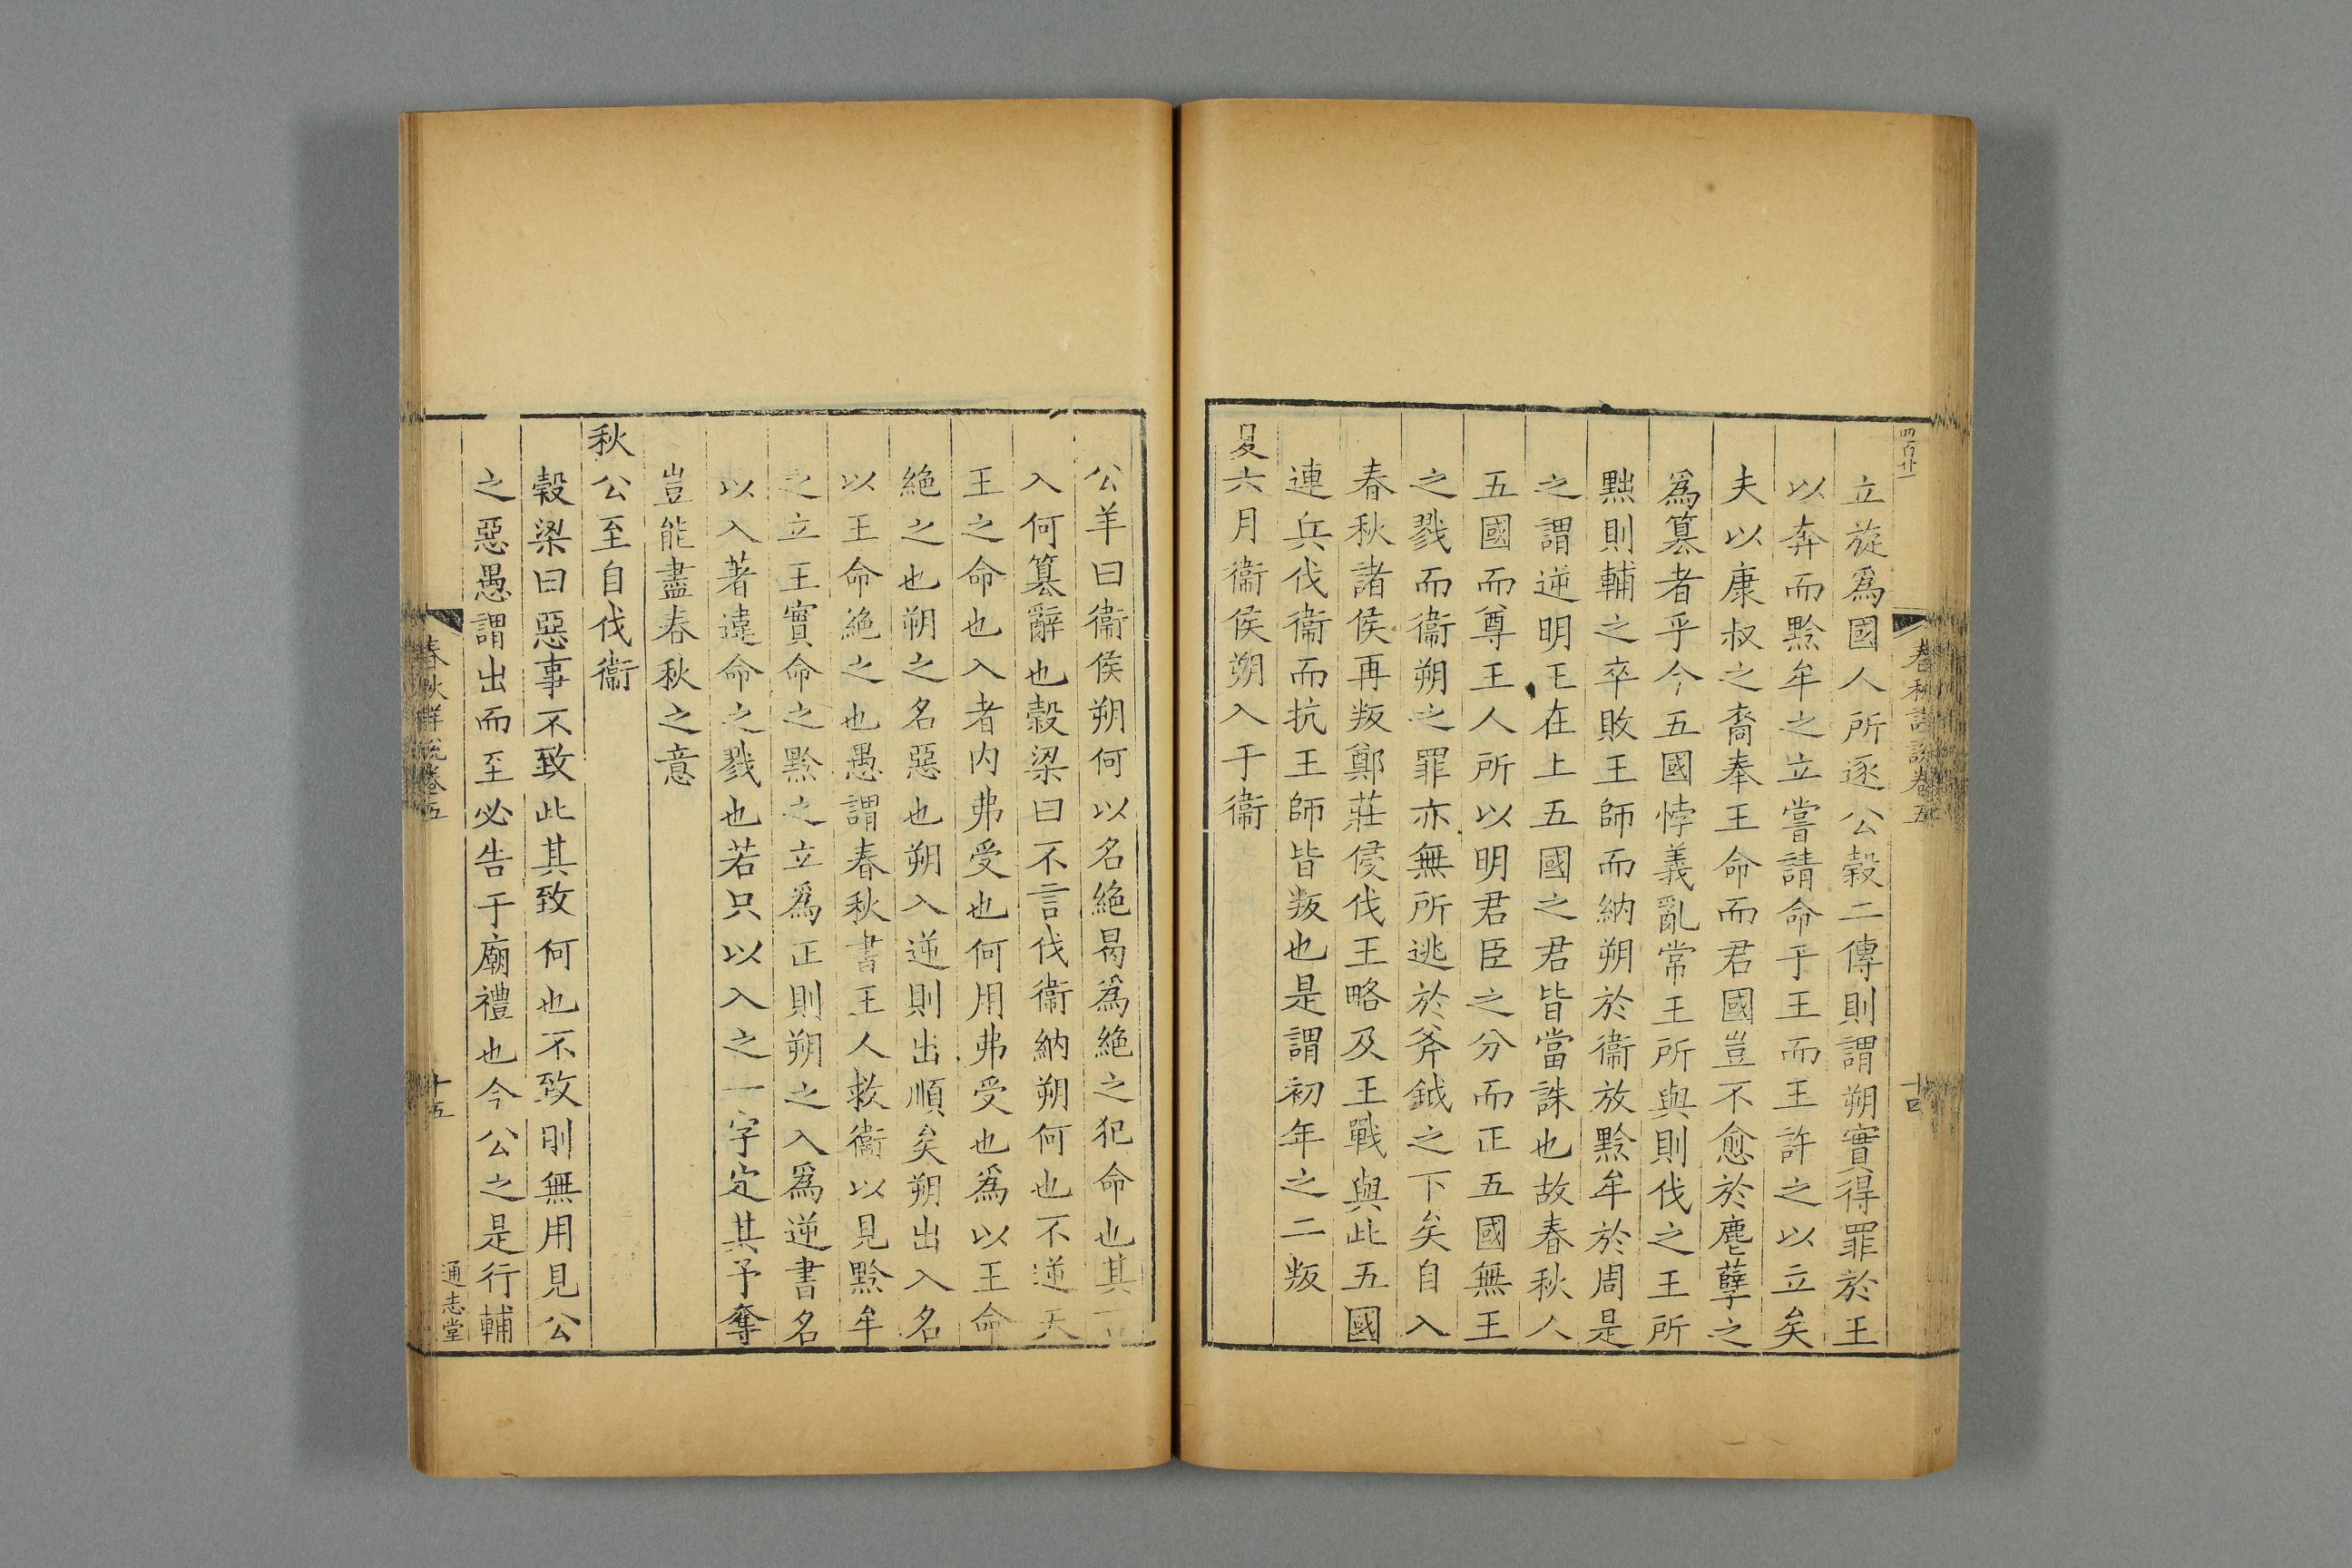 四百廿一
春秋詳說卷五
十四
立旋爲國人所逐公穀二傳則謂朔實得罪於王
以奔而黔牟之立嘗請命于王而王許之以立矣
夫以康叔之裔奉王命而君國豈不愈於麀孽之
爲簒者乎今五國悖義亂常王所與則伐之王所
黜則輔之卒敗王師而納朔於衞放黔牟於周是
之謂逆明王在上五國之君皆當誅也故春秋人
五國而尊王人所以明君臣之分而正五國無王
之戮而衞朔之罪亦無所逃於斧鉞之下矣自入
春秋諸侯再叛鄭莊侵伐王略及王戰與此五國
連兵伐衞而抗王師皆叛也是謂初年之二叛
夏六月衞侯朔入于衞
公羊曰衞侯朔何以名絶曷爲絶之犯命也其
入何簒辭也穀梁曰不言伐衞納朔何也不逆天
王之命也入者内弗受也何用弗受也爲以王命
絶之也朔之名惡也朔入逆則出順矣朔出入名
以王命絶之也愚謂春秋書王人救衞以見黔牟
之立王實命之黔之立爲正則朔之入爲逆書名
以入著違命之戮也若只以入之一字定其予奪
豈能盡春秋之意
秋公至自伐衞
穀梁曰惡事不致此其致何也不致則無用見公
之惡愚謂出而至必告于廟禮也今公之是行輔
春秋詳說卷五
十五
通志堂